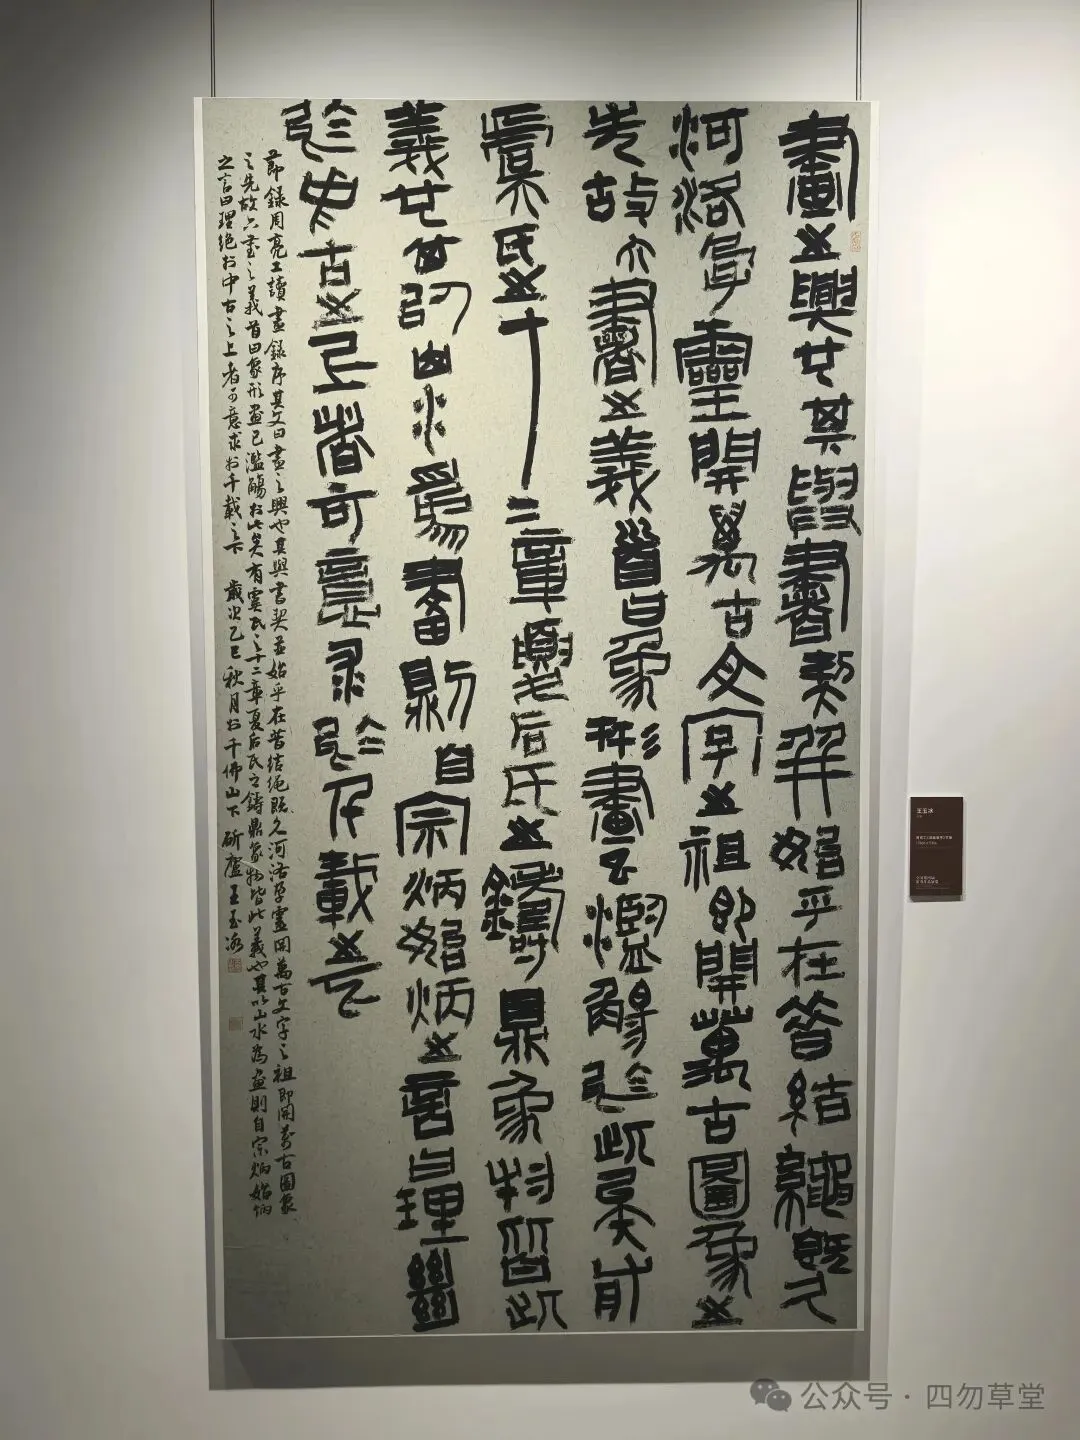 畫之興也其與書契并始乎在昔結繩既久
河洛孕靈開萬古文字之祖即開萬古圖象之
先故六書之義首曰象形畫已濫觴於此矣有
虞氏之十二章夏后氏之鑄鼎象物皆此
義也其以山水為畫則自宗炳始炳之言曰理絕
於中古之上者可意求於千載之下
節錄周亮工讀畫錄序其文曰畫之興也其與書契并始乎在昔結繩既久河洛孕靈開萬古文字之祖即開萬古圖象
之先故六書之義首曰象形畫已濫觴於此矣有虞氏之十二章夏后氏之鑄鼎象物皆此義也其以山水為畫則自宗炳始炳
之言曰理絕於中古之上者可意求於千載之下 歲次乙巳秋月於千佛山下 斫廬王玉冰
王玉冰
公众号·四勿草堂